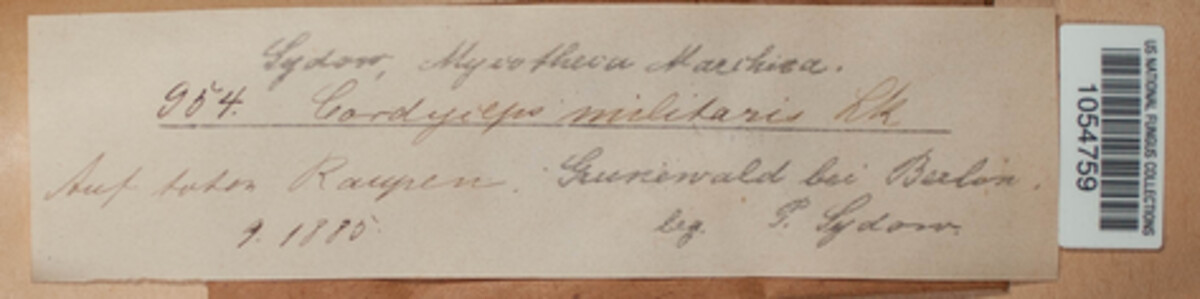 Sydow, Mycotheca Marchica.
954. Cordyceps militaris Lk
Auf toten Raupen. Grunewald bei Berlin.
9. 1885. leg. P. Sydow.
US NATIONAL FUNGUS COLLECTIONS
1054759